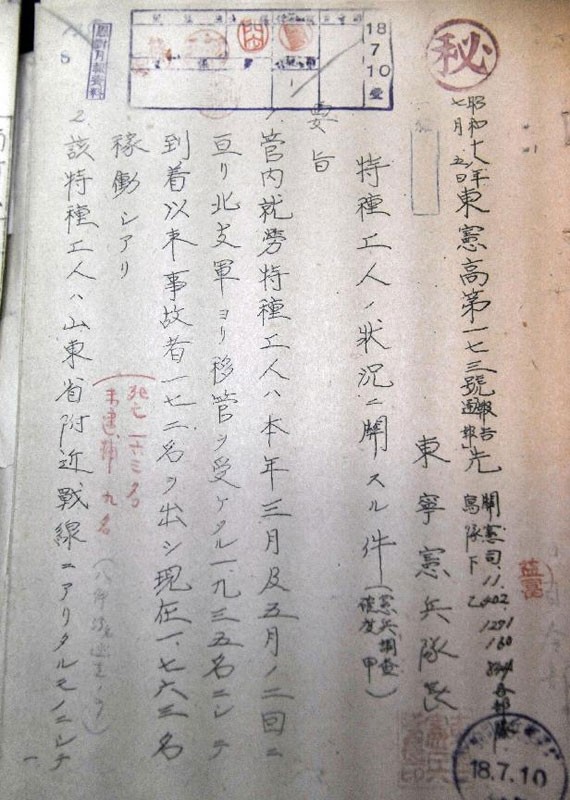 秘
18
7
10
昭和十八年七月五日 東憲高第一七三號 報告通報「先
關憲司. 11. 402. 1291 160
東寧憲兵隊長
特種工人ノ状況ニ關スル件(憲兵調査確度甲)
要旨
1. 管内就勞特種工人ハ本年三月及五月ノ二回ニ
亘リ北支軍ヨリ移管ヲ受ケタル一、九三五名ニシテ
到着以来事故者一七二名ヲ出シ現在一、七六三名
稼働シアリ
死亡一六三名
未逮捕九名
2. 該特種工人ハ山東省附近戰線ニアリタルモノニシテ
一
18.7.10